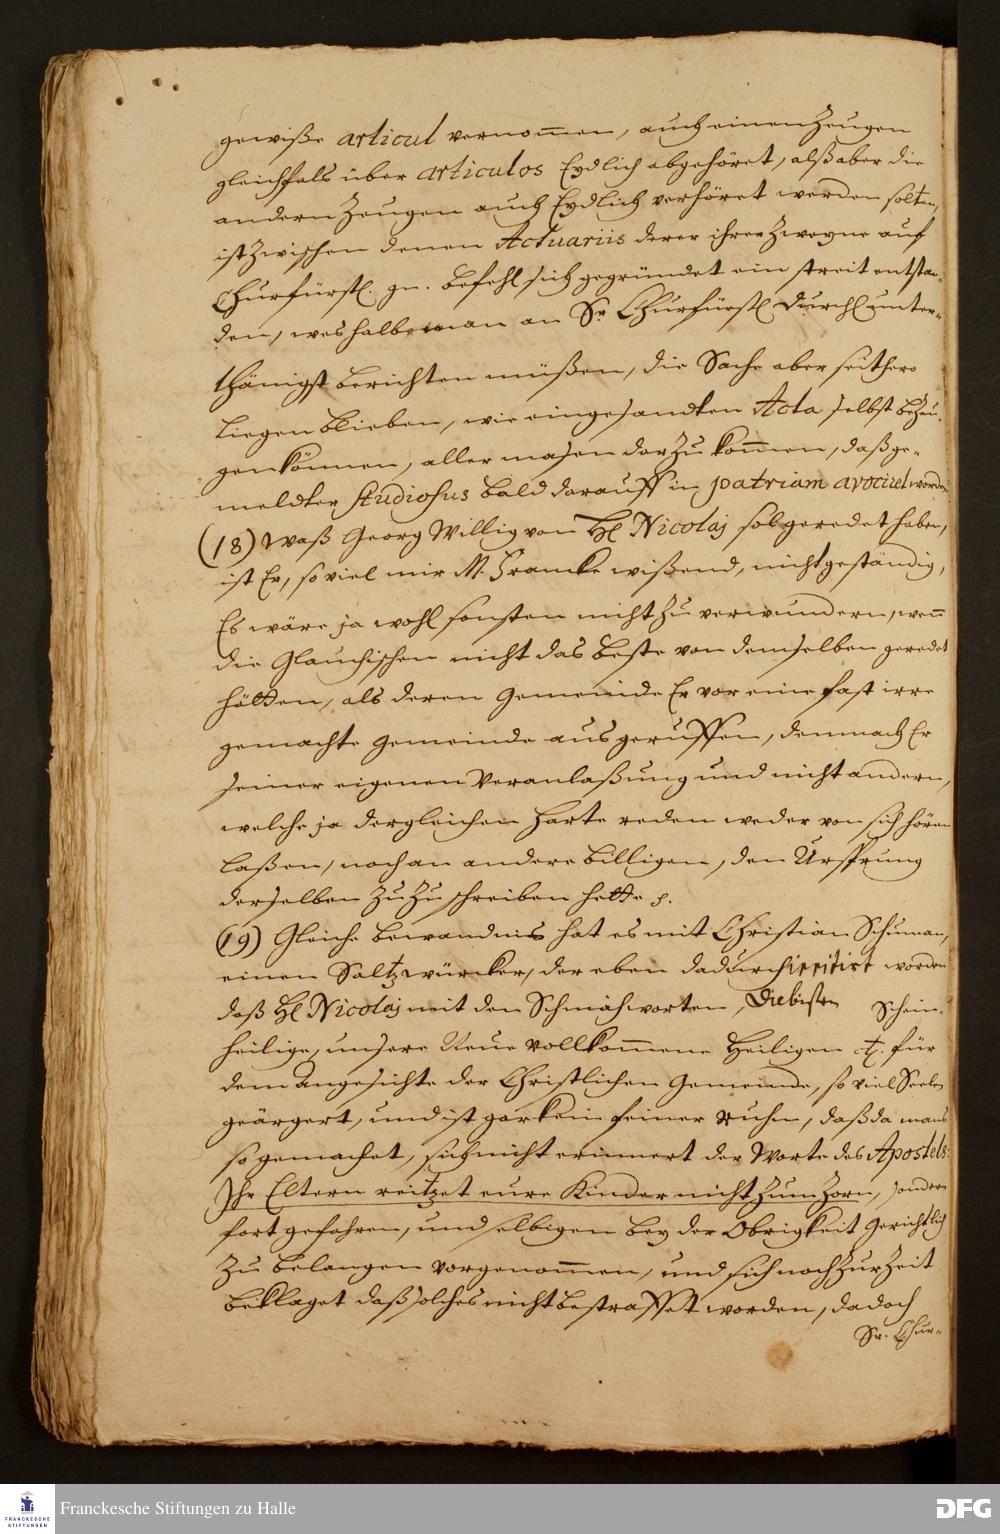 gewiße articul vernom̄en, auch einen Zeugen
gleichfals über articulos Eydlich abgehöret, alß aber die
andern Zeugen auch Eydlich verhöret werden solten,
ist zwischen denen Actuariis derer ihrer zweyne auf
Churfürstl. gn. Befehl sich gegründet ein streit entstan-
den, weshalb man an Sr Churfürstl Durchl unter-
thänigst berichten müßen, die Sache aber seithero
liegen blieben, wie eingesandten Acta selbst bezeu-
gen können, aller masen darzu kom̄en, daß ge-
meldter Studiosus bald darauff in patriam avociret worden
(18) Waß Georg Willig von Hl Nicolaj sol geredet haben,
ist Er, so viel mir M. Francke wißend, nicht geständig,
Es wäre ja wohl sonsten nicht zu verwundern, wen̄
die Glauchischen nicht das Beste von demselben geredet
hätten, als deren Gemeinde Er vor eine fast irre
gemachte Gemeinde ausgeruffen, demnach Er
seiner eigenen Veranlaßung und nicht andern,
welche ja dergleichen harte reden weder von sich hören
laßen, noch an andere billigen, den Ursprung
derselben zuzuschreiben hette.
(19) Gleiche bewandnis hat es mit Christian Schuman,
einen Saltzwürcker, der eben dadurch irritirt worden
daß Hl Nicolaj mit den Schmähworten, Diebischen Schein-
heilige, unsere Neue vollkom̄ene Heiligen etc. für
dem Angesichte der Christlichen Gemeinde, so viel Seelen
geärgert, und ist gar kein feiner ruhm, daß da mans
so gemachet, sich nicht erinnert der Worte des Apostels:
Ihr Eltern reitzet eure Kinder nicht zum Zorn, sondern
fort gefahren, und selbigen bey der Obrigkeit Gerichtlich
zu belangen vorgenom̄en, und sich noch zur Zeit
beklaget daß solches nicht bestraffet worden, da doch
Sr. Chur-
FRANCKESCHE STIFTUNGEN
Franckesche Stiftungen zu Halle
DFG